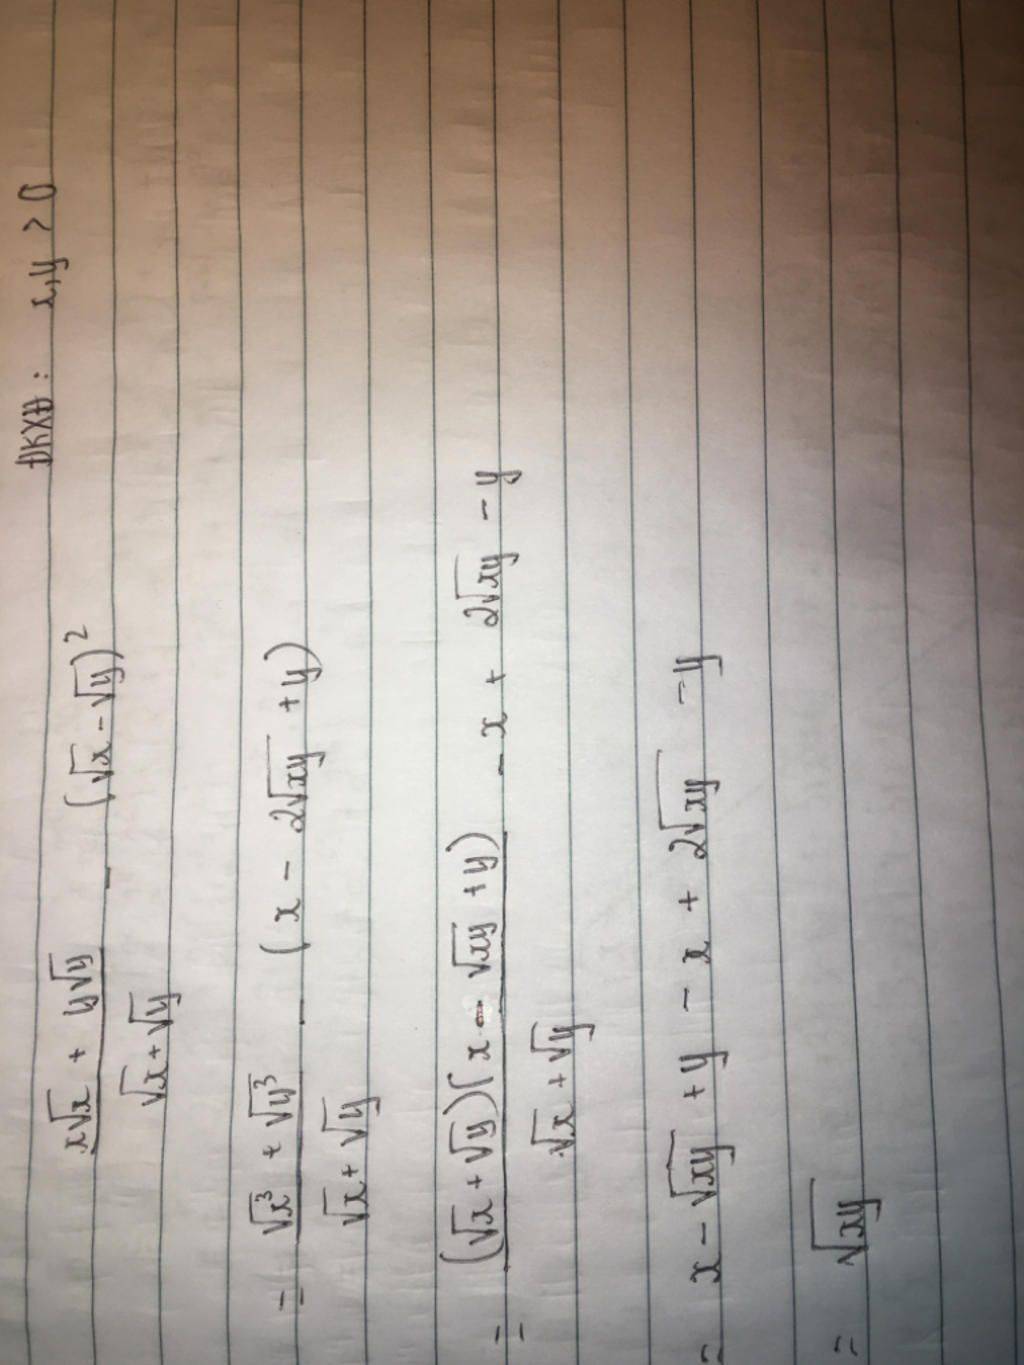 ĐKXĐ: x,y > 0
(x√x + y√y)/(√x + √y) - (√x - √y)²
= (√x³ + √y³)/(√x + √y) - (x - 2√xy + y)
= (√x + √y)(x - √xy + y)/(√x + √y) - x + 2√xy - y
= x - √xy + y - x + 2√xy - y
= √xy